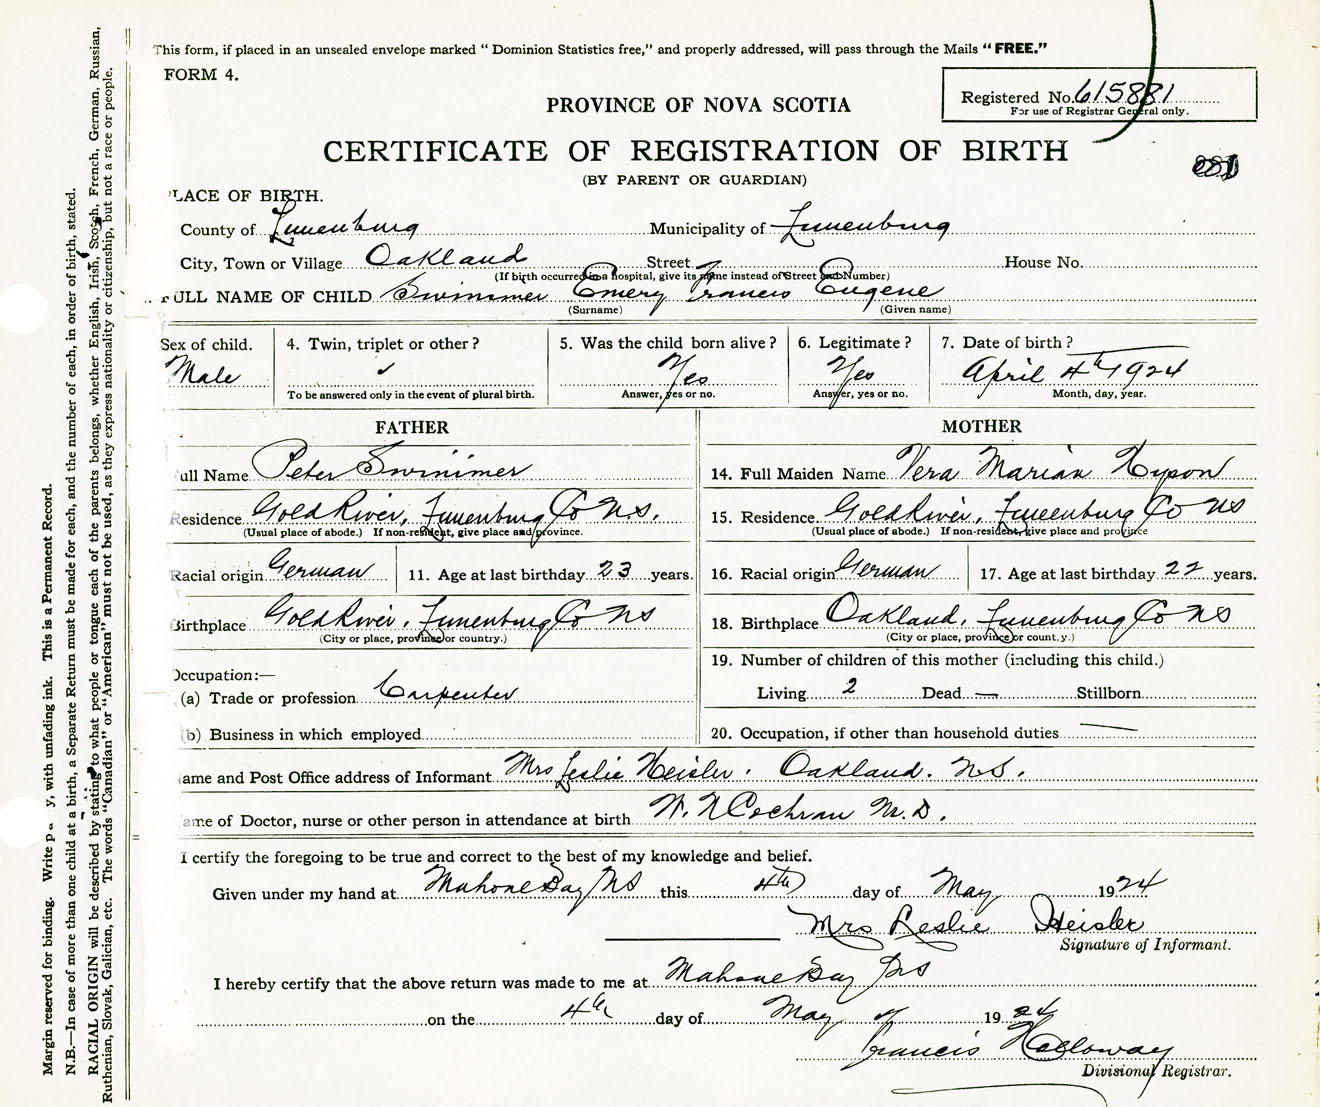 This form, if placed in an unsealed envelope marked “ Dominion Statistics free,” and properly addressed, will pass through the Mails “ FREE.”
FORM 4.
Registered No. 615881
For use of Registrar General only.
PROVINCE OF NOVA SCOTIA
CERTIFICATE OF REGISTRATION OF BIRTH
(BY PARENT OR GUARDIAN)
881
LACE OF BIRTH.
County of Lunenburg Municipality of Lunenburg
City, Town or Village Oakland Street House No.
(If birth occurred in a hospital, give its name instead of Street and Number)
ULL NAME OF CHILD Swimmer Emery Francis Eugene
(Surname) (Given name)
Sex of child. 4. Twin, triplet or other ? 5. Was the child born alive ? 6. Legitimate ? 7. Date of birth ?
Male Yes Yes April 4th 1924
To be answered only in the event of plural birth. Answer, yes or no. Answer, yes or no. Month, day, year.
FATHER MOTHER
ull Name Peter Swinimer 14. Full Maiden Name Vera Marian Hyson
Residence Gold River, Lunenburg Co N.S. 15. Residence Gold River, Lunenburg Co NS
(Usual place of abode.) If non-resident, give place and province. (Usual place of abode.) If non-resident, give place and province
Racial origin German 11. Age at last birthday 23 years. 16. Racial origin German 17. Age at last birthday 22 years.
Birthplace Gold River, Lunenburg Co NS 18. Birthplace Oakland, Lunenburg Co NS
(City or place, province or country.) (City or place, province or country.)
Occupation:— 19. Number of children of this mother (including this child.)
(a) Trade or profession Carpenter Living 2 Dead — Stillborn
(b) Business in which employed 20. Occupation, if other than household duties —
ame and Post Office address of Informant Mrs Leslie Heisler. Oakland. N.S.
ame of Doctor, nurse or other person in attendance at birth W. N Cochran M.D.
I certify the foregoing to be true and correct to the best of my knowledge and belief.
Given under my hand at Mahone Bay NS this 4th day of May 1924
Mrs Leslie Heisler
Signature of Informant.
I hereby certify that the above return was made to me at Mahone Bay NS
on the 4th day of May 1924
Francis Holloway
Divisional Registrar.
Margin reserved for binding. Write p y, with unfading ink. This is a Permanent Record.
N.B.—In case of more than one child at a birth, a Separate Return must be made for each, and the number of each, in order of birth, stated.
RACIAL ORIGIN will be described by stating to what people or tongue each of the parents belongs, whether English, Irish, Scotch, French, German, Russian,
Ruthenian, Slovak, Galician, etc. The words “Canadian” or “American” must not be used, as they express nationality or citizenship, but not a race or people.